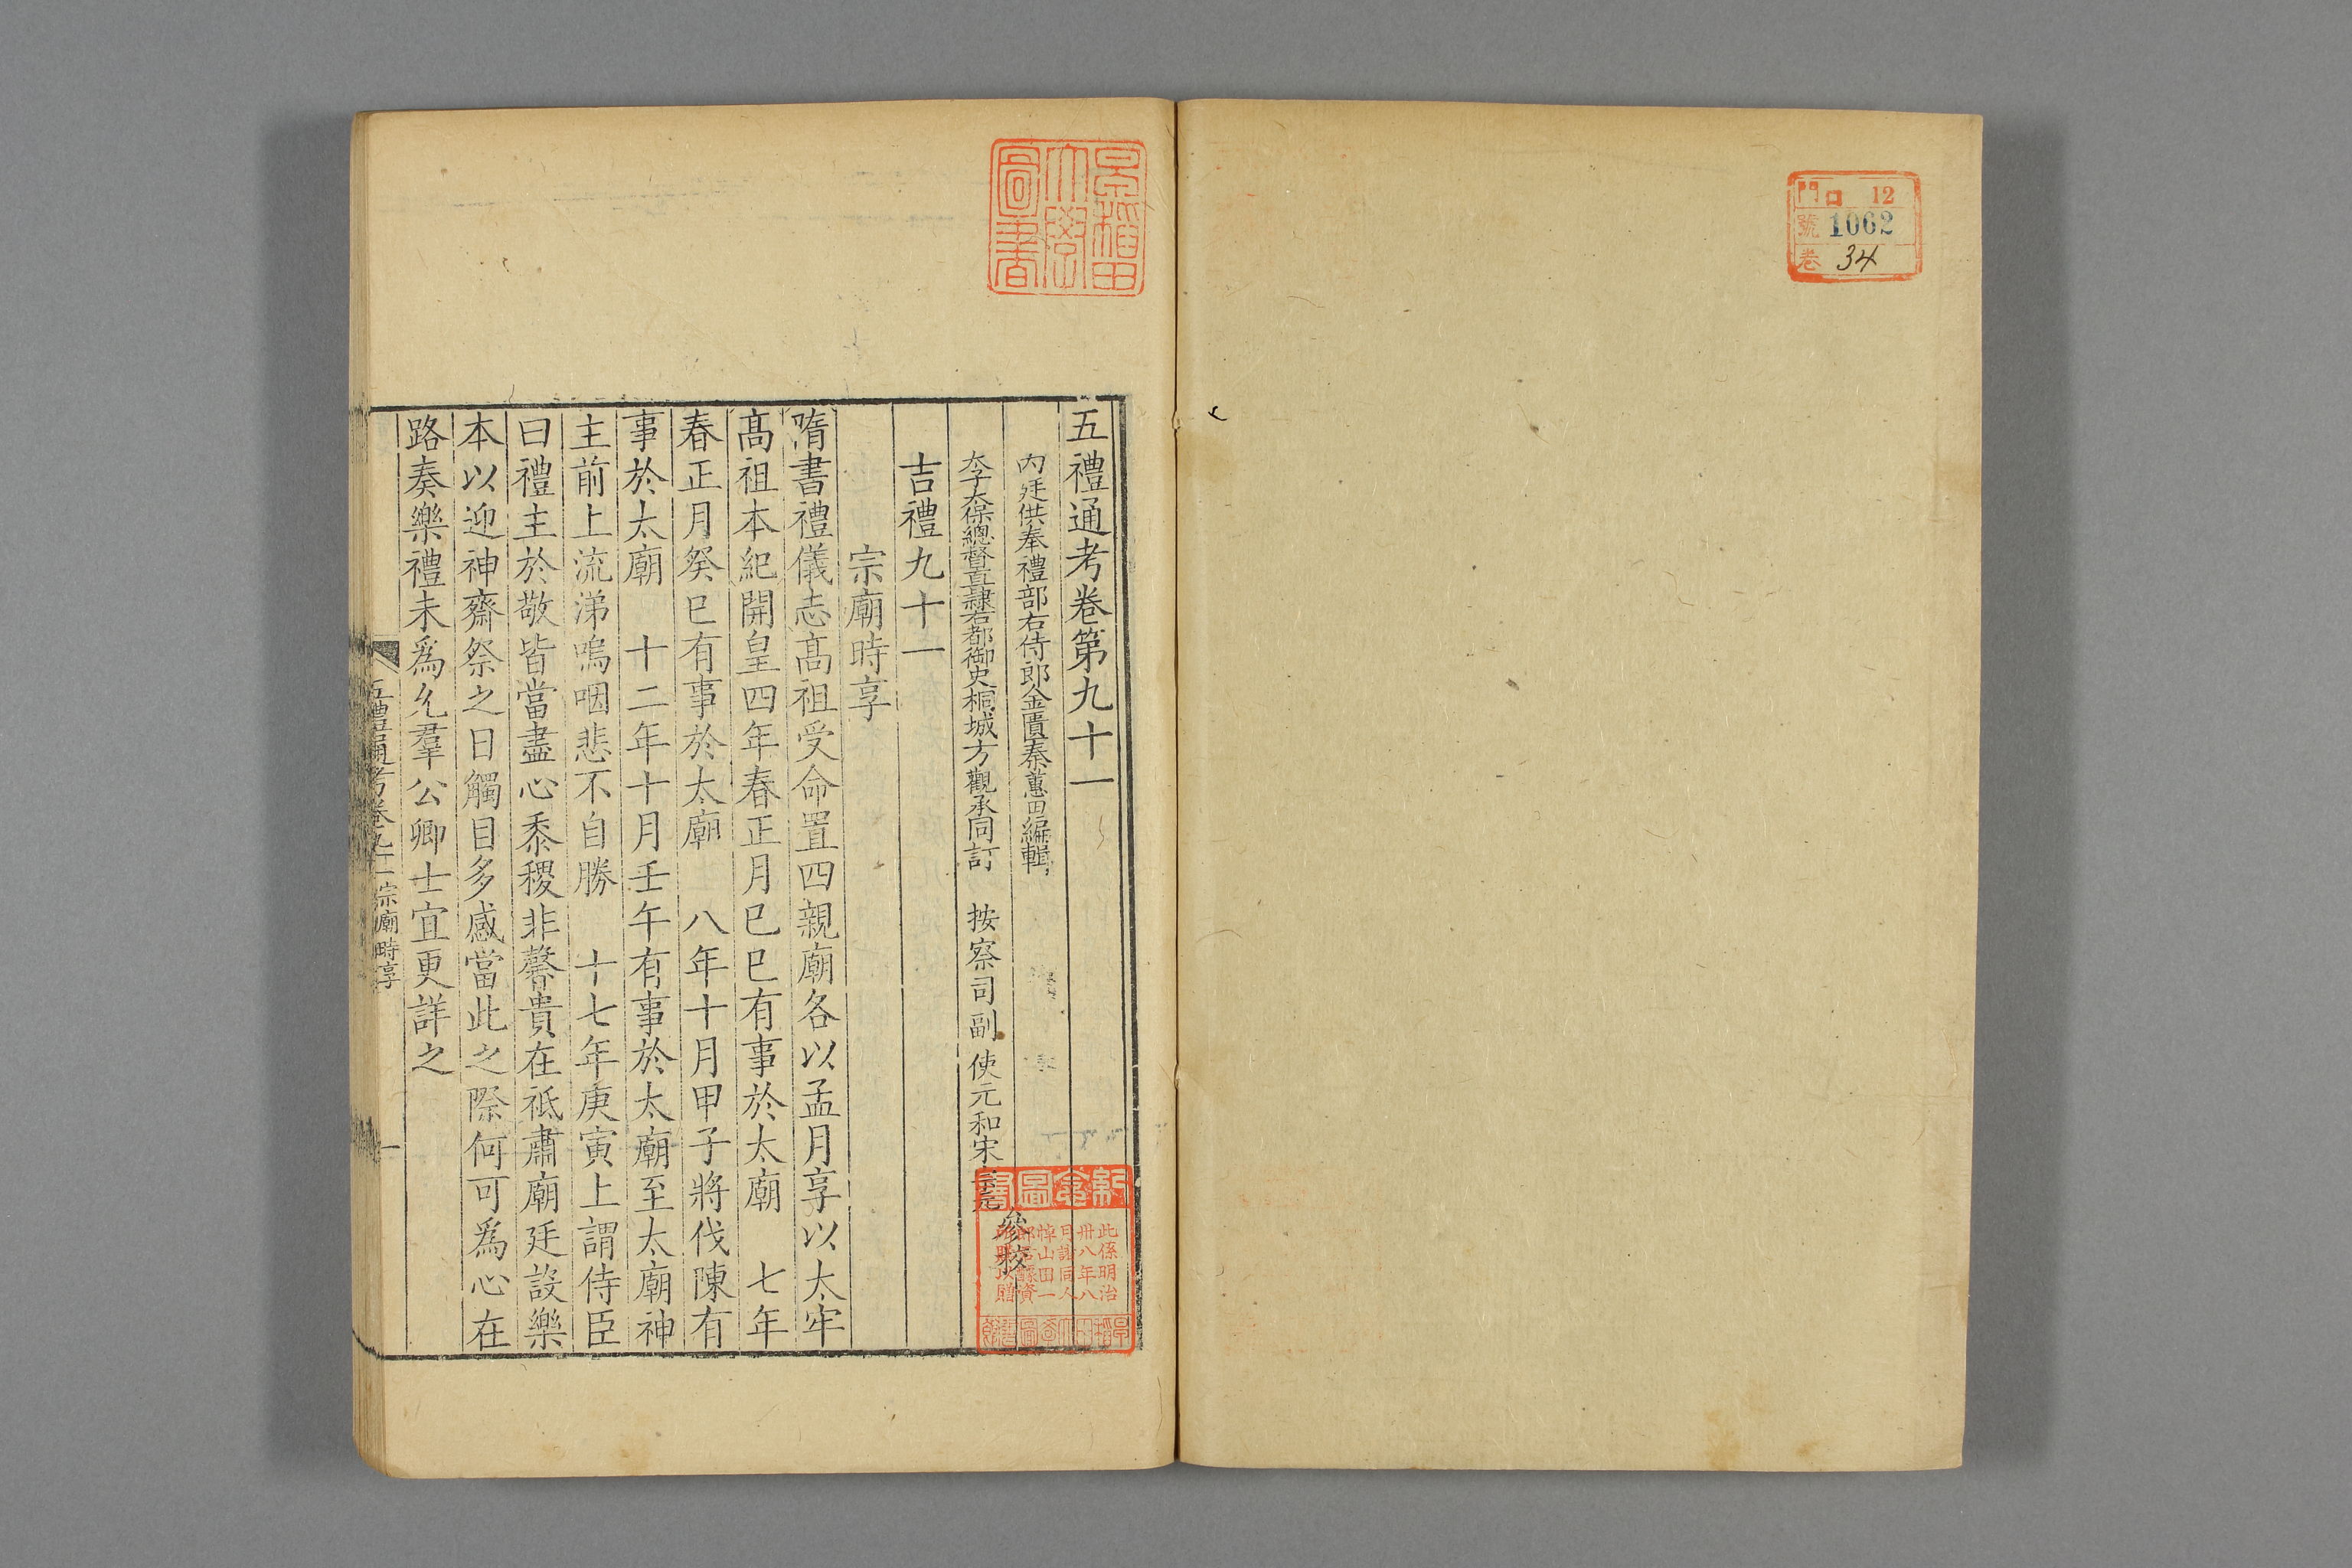 門 口 12
號 1062
卷 34
早稻田
大學
圖書
五禮通考卷第九十一
內廷供奉禮部右侍郎金匱秦蕙田編輯
太子太保總督直隸右都御史桐城方觀承同訂 按察司副使元和宋宗元參校
吉禮九十一
宗廟時享
隋書禮儀志髙祖受命置四親廟各以孟月享以太牢
髙祖本紀開皇四年春正月己巳有事於太廟 七年
春正月癸巳有事於太廟 八年十月甲子將伐陳有
事於太廟 十二年十月壬午有事於太廟至太廟神
主前上流涕嗚咽悲不自勝 十七年庚寅上謂侍臣
曰禮主於敬皆當盡心黍稷非馨貴在祗肅廟廷設樂
本以迎神齋祭之日觸目多感當此之際何可爲心在
路奏樂禮未爲允羣公卿士宜更詳之
五禮通考卷九十一 宗廟時享 一
此係明治
卅八年八
月諸同人
悼山田一
郎君醵資